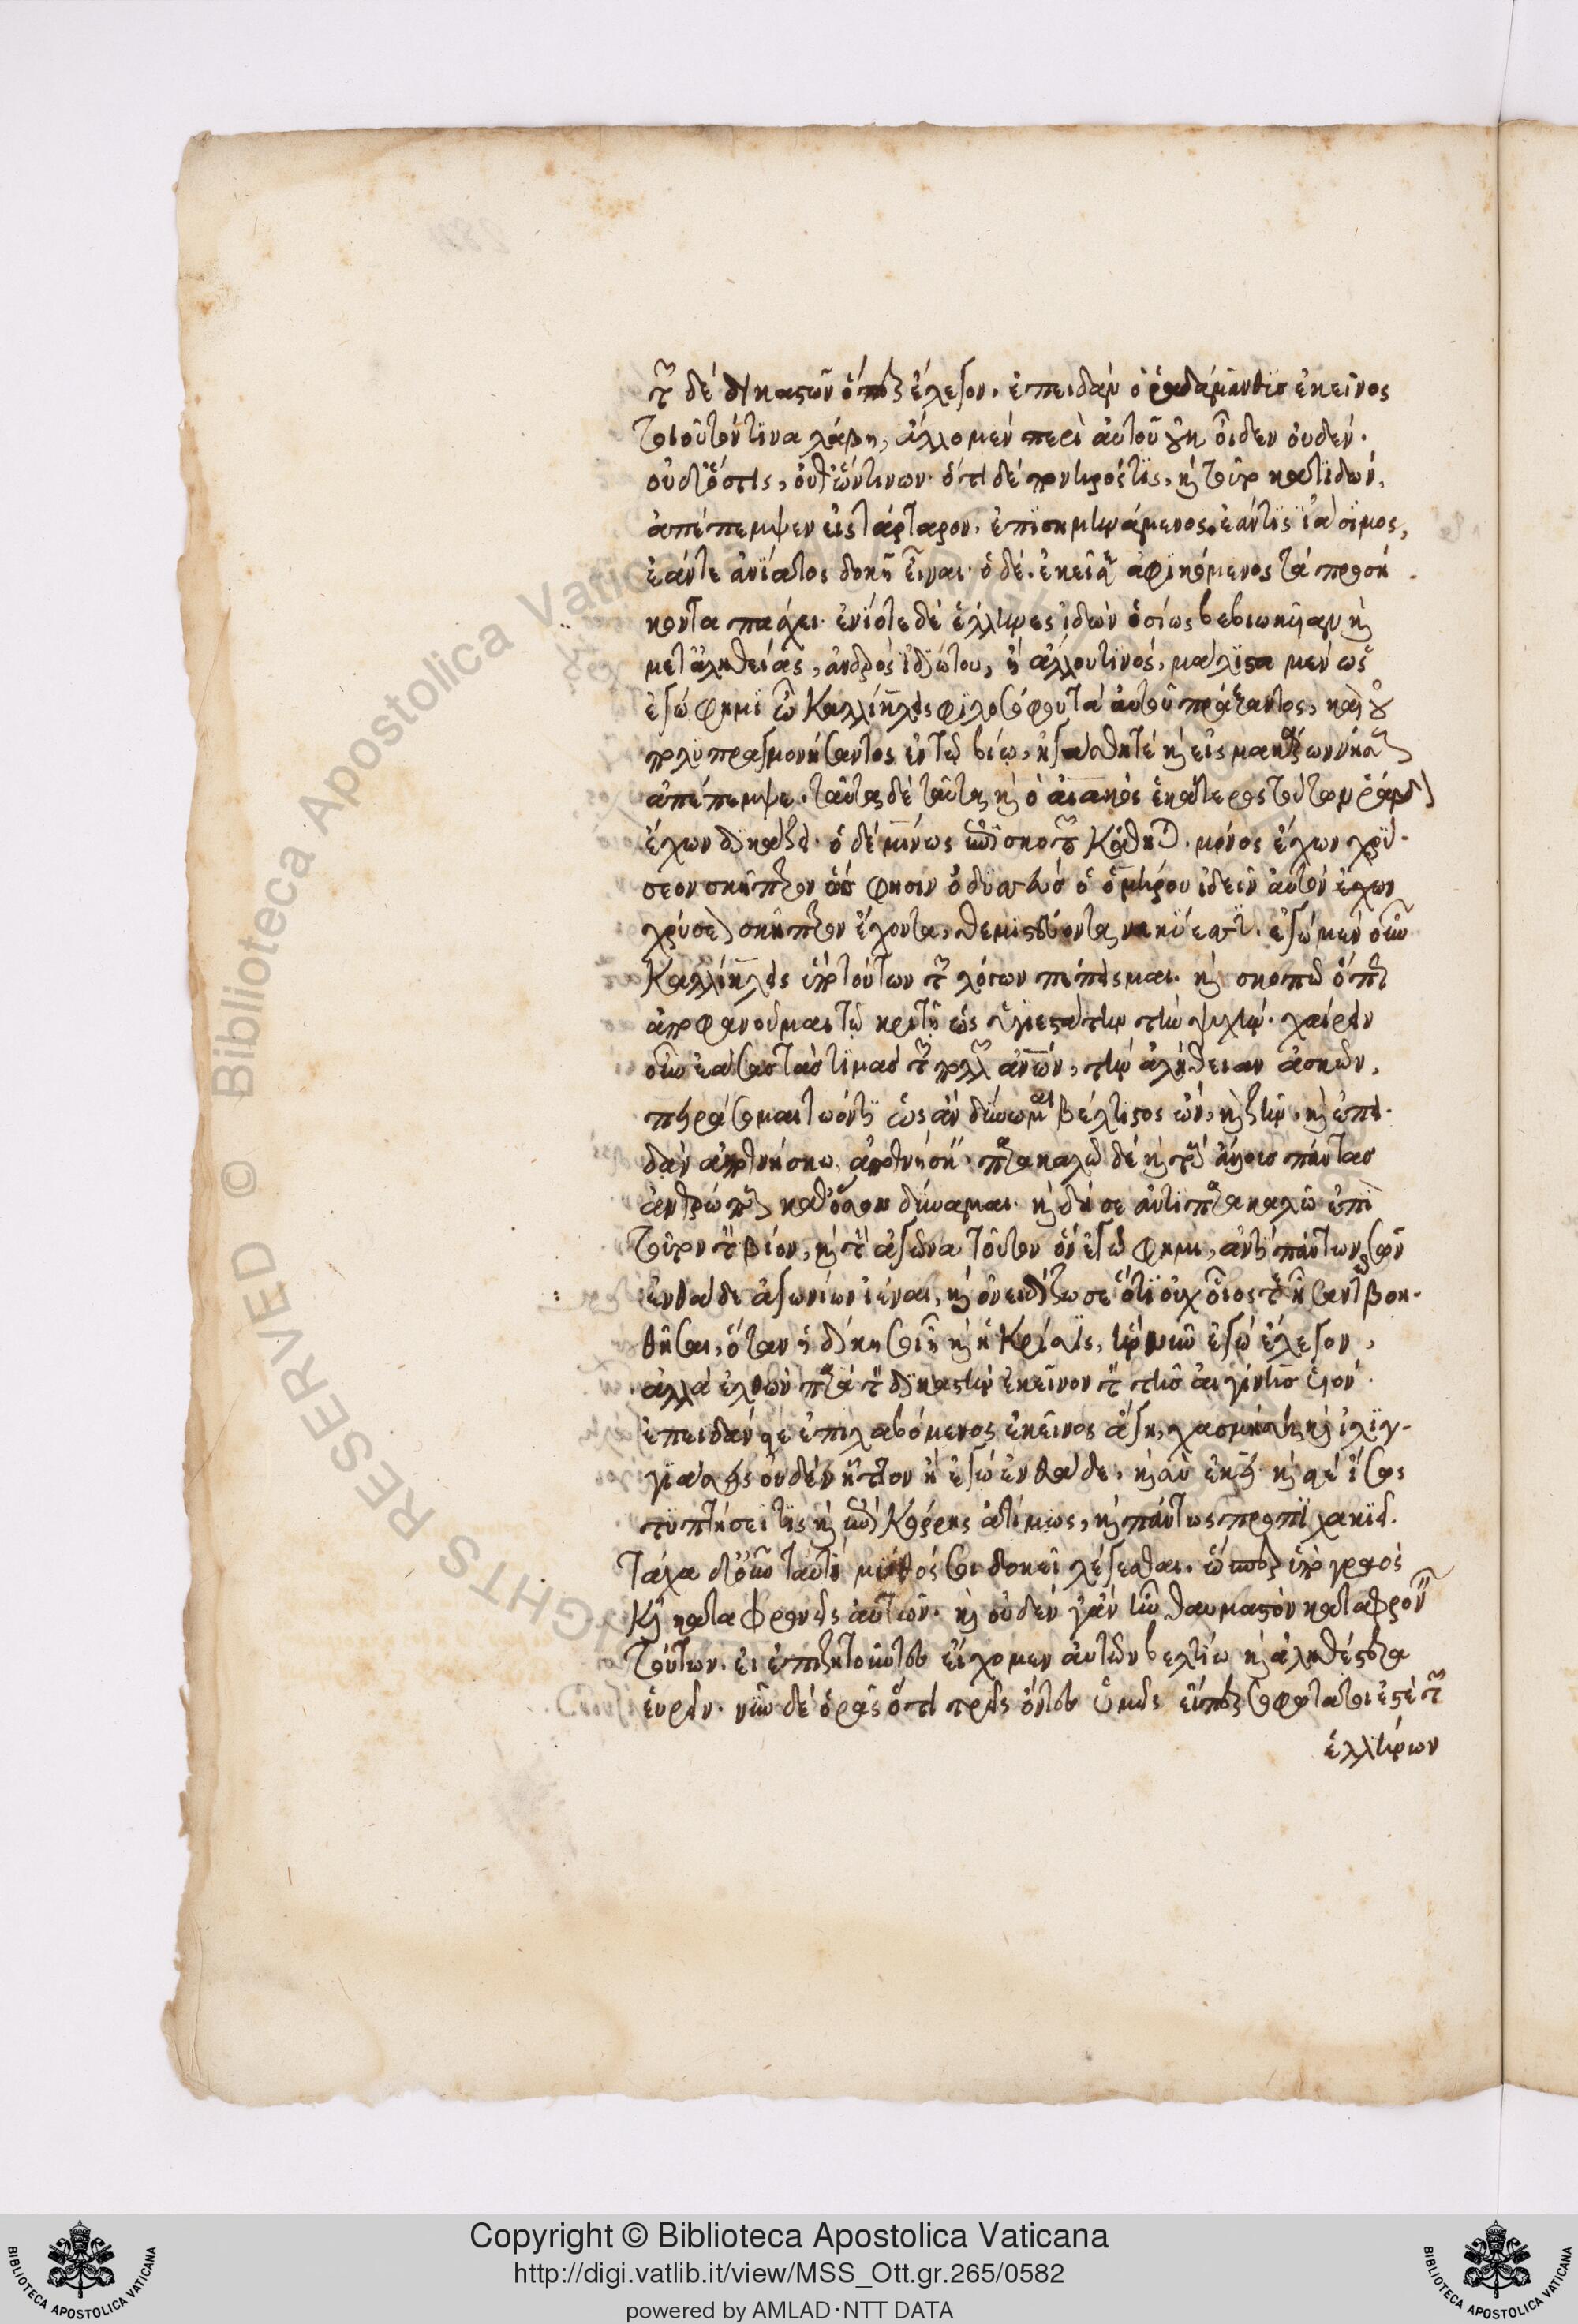 τῶν δὲ δικαστῶν ὅπερ ἔλεγον. ἐπειδὰν ὁ ῥαδάμανθϊσ ἐκεῖνος
τοιοῦτόν τινα λάβῃ, ἄλλο μὲν περὶ αὐτοῦ οὐκ οἶδεν οὐδέν.
οὐδ' ὅστις, οὐθ' ὧντινων. ὅτι δὲ πονηρός τις, καὶ τοῦτο κατιδὼν,
ἀπέπεμψεν εἰς τάρταρον. ἐπισημηνάμενος. ἐάν τις ἰάσιμος,
ἐάν τε ἀνίατος δοκῇ εἶναι. ὁ δὲ. ἐκεῖσε ἀφικόμενος τὰ προσή
κοντα πάσχει. ἐνίοτε δὲ
μετ' ἀληθείας, ἀνδρὸς ἰδιώτου, ἢ ἄλλου τινός, μάλιστα μὲν ὡς
ἐγώ φημι ὦ Καλλίκλεις φιλοσόφου τὰ αὑτοῦ πράξαντος, καὶ οὐ
πολυπραγμονήσαντος ἐν τῷ βίῳ, ἠγάσθη τε καὶ εἰς μακάρων νήσους
ἀπέπεμψε. ταῦτα δὲ ταῦτα καὶ ὁ αἰακός ἑκάτερος τούτων ῥάβδον
ἔχων δικάζει. ὁ δὲ μίνως ἐπισκοπῶν κάθηται. μόνος ἔχων χρυ-
σεον σκῆπτρον ὥς φησιν ὀδυσσεὺς ὁ ὁμήρου ἰδεῖν αὐτὸν ἔχων
χρύσεον σκῆπτρον ἔχοντα, θεμιστεύοντα νεκύεσσι. ἐγὼ μὲν οὖν
Καλλίκλεις ὑπὸ τούτων τῶν λόγων πέπεισμαι. καὶ σκοπῶ ὅπως
ἀποφανοῦμαι τῷ κριτῇ ὡς ὑγιεστάτην τὴν ψυχήν. χαίρειν
οὖν ἐάσας τὰς τιμὰς τῶν πολλῶν ἀνων, τὴν ἀλήθειαν ἀσκῶν,
πειράσομαι τῷ ὄντι ὡς ἂν δύνωμαι βέλτιστος ὤν, καὶ ζῆν, καὶ ἐπει
δὰν ἀποθνήσκω ἀποθνήσκειν. παρακαλῶ δὲ καὶ τοὺς ἄλλους πάντας
ἀνθρώπους καθ' ὅσον δύναμαι. καὶ δή σε ἀντιπαρακαλῶ ἐπὶ
τοῦτον τὸν βίον, καὶ τὸν ἀγῶνα τοῦτον ὃν ἐγώ φημι, ἀντὶ πάντων τῶν
ἐνθάδε ἀγώνων ἰέναι, καὶ ὀνειδίζω σε ὅτι οὐχ οἷος τ' ἔσῃ σαυτῷ βοη-
θῆσαι, ὅταν ἡ δίκη σοι ᾖ καὶ ἡ κρίσις, ἣν νῦν ἐγὼ ἔλεγον,
ἀλλὰ ἐλθὼν παρὰ τὸν δικαστὴν ἐκεῖνον τὸν τῆς αἰγίνης ὑιόν.
ἐπειδάν σε ἐπιλαβόμενος ἐκεῖνος ἄγῃ, χασμήσῃ καὶ ἰλιγ-
γιάσεις οὐδὲν ἧττον ἢ ἐγὼ ἐνθάδε, καὶ σὺ ἐκεῖ. καί σε ἴσως
τυπτήσει τις καὶ ἐπὶ κόρρης ἀτίμως, καὶ πάντως προπηλακιεῖ.
τάχα δ' οὖν ταῦτα μῦθός σοι δοκεῖ λέγεσθαι. ὥσπερ ὑπὸ γραός
καὶ καταφρονεῖς αὐτῶν. καὶ οὐδέν γ' ἂν ἦν θαυμαστὸν καταφρονεῖν
τούτων. εἰ ἐπιζητοῦντες εἴχομεν αὐτῶν βελτίω καὶ ἀληθέστερα
εὑρεῖν. νῦν δὲ ὁρᾷς ὅτι τρεῖς ὄντες ὑμεῖς οἵπερ σοφώτατοί ἐστε τῶν
ἑλλήνων
Copyright © Biblioteca Apostolica Vaticana
http://digi.vatlib.it/view/MSS_Ott.gr.265/0582
powered by AMLAD·NTT DATA
BIBLIOTECA APOSTOLICA VATICANA
BIBLIOTECA APOSTOLICA VATICANA